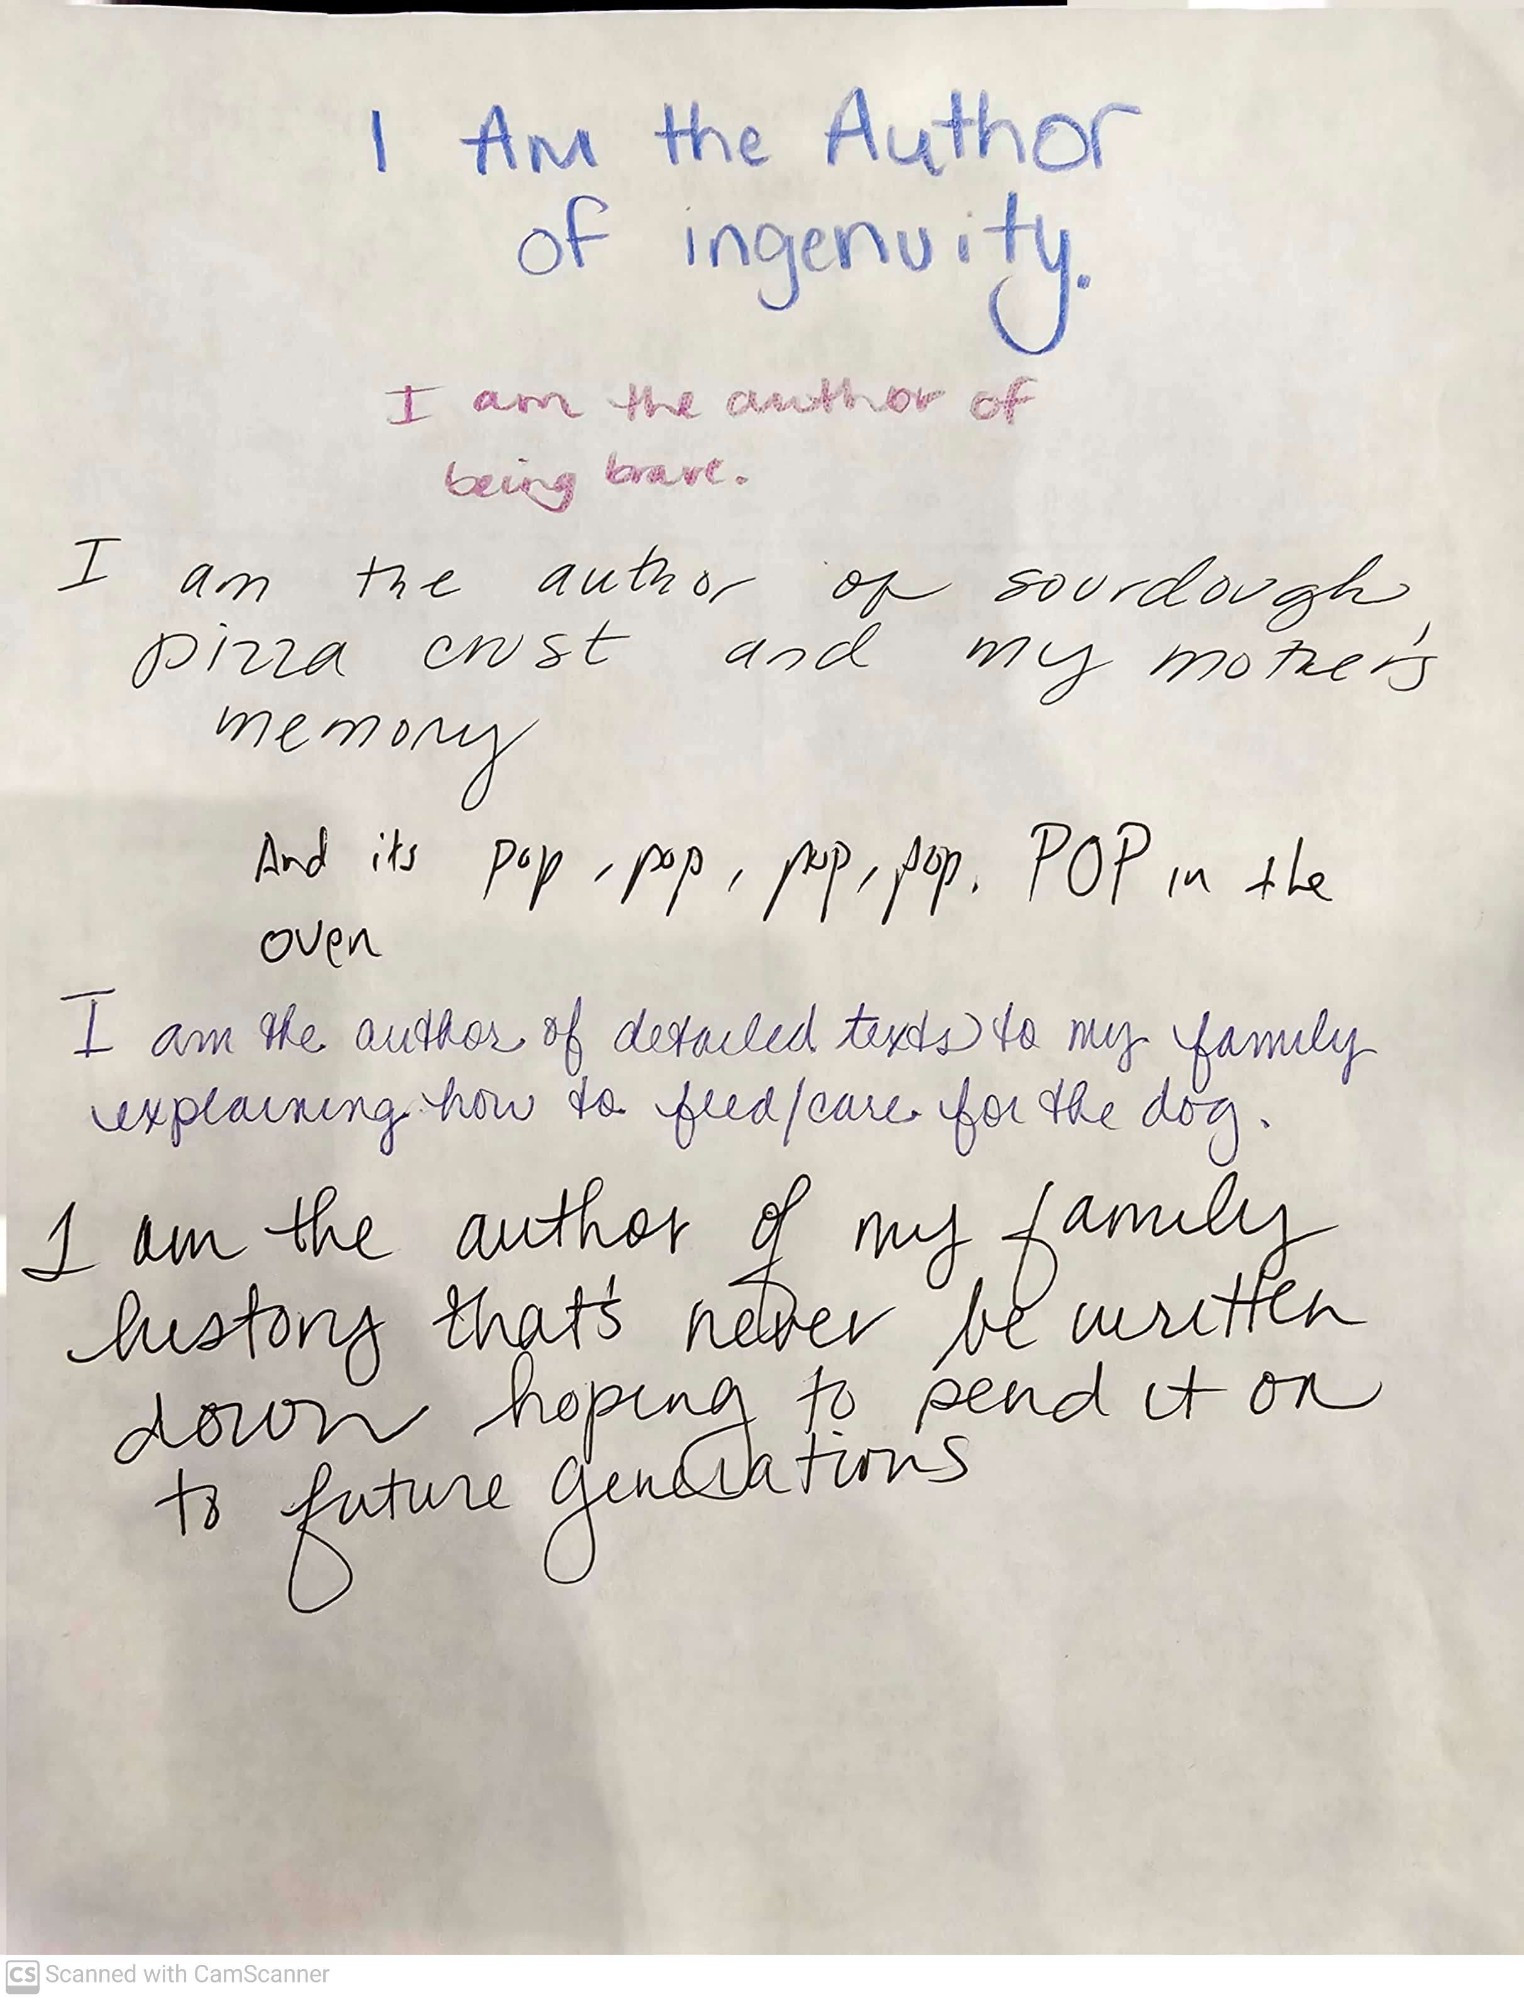 I Am the Author
of ingenuity.
I am the author of
being brave.
I am the author of sourdough
pizza crust and my mother's
memory
And its pop, pop, pop, pop. POP in the
oven
I am the author of detailed texts to my family
explaining how to feed/care for the dog.
I am the author of my family
history that's never be written
down hoping to send it on
to future generations
CS Scanned with CamScanner